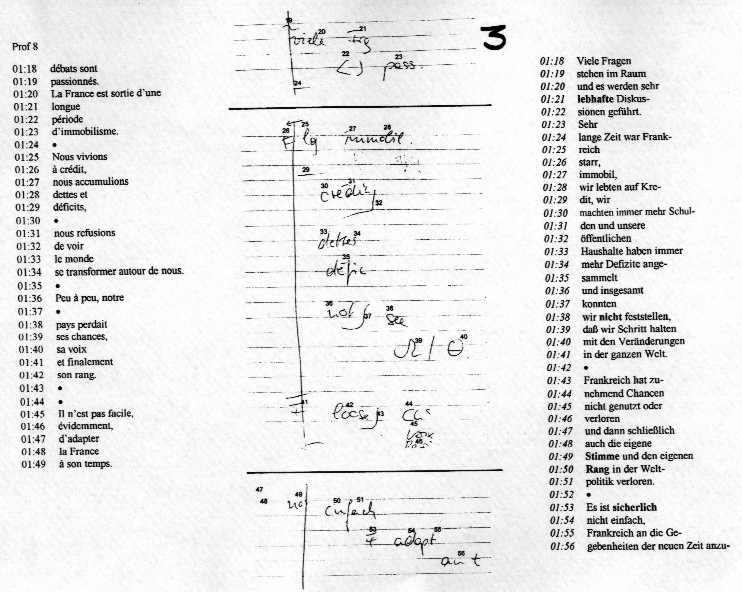 Prof 8
01:18 débats sont
01:19 passionnés.
01:20 La France est sortie d'une
01:21 longue
01:22 période
01:23 d'immobilisme.
01:24 •
01:25 Nous vivions
01:26 à crédit,
01:27 nous accumulions
01:28 dettes et
01:29 déficits,
01:30 •
01:31 nous refusions
01:32 de voir
01:33 le monde
01:34 se transformer autour de nous.
01:35 •
01:36 Peu à peu, notre
01:37 •
01:38 pays perdait
01:39 ses chances,
01:40 sa voix
01:41 et finalement
01:42 son rang.
01:43 •
01:44 •
01:45 Il n'est pas facile,
01:46 évidemment,
01:47 d'adapter
01:48 la France
01:49 à son temps.
3
19 20 21
viele
22 23
(-) pass.
24
25 26 27 28
lg immobil.
29
30 31
crédit
32
33 34
dettes
35
défic
36 37 38
not see
39 40
41 42 43 44
loose
45
voix
46
47
48 49 50 51
no einfach
53 54 55
adapt
56
01:18 Viele Fragen
01:19 stehen im Raum
01:20 und es werden sehr
01:21 lebhafte Diskus-
01:22 sionen geführt.
01:23 Sehr
01:24 lange Zeit war Frank-
01:25 reich
01:26 starr,
01:27 immobil,
01:28 wir lebten auf Kre-
01:29 dit, wir
01:30 machten immer mehr Schul-
01:31 den und unsere
01:32 öffentlichen
01:33 Haushalte haben immer
01:34 mehr Defizite ange-
01:35 sammelt
01:36 und insgesamt
01:37 konnten
01:38 wir nicht feststellen,
01:39 daß wir Schritt halten
01:40 mit den Veränderungen
01:41 in der ganzen Welt.
01:42 •
01:43 Frankreich hat zu-
01:44 nehmend Chancen
01:45 nicht genutzt oder
01:46 verloren
01:47 und dann schließlich
01:48 auch die eigene
01:49 Stimme und den eigenen
01:50 Rang in der Welt-
01:51 politik verloren.
01:52 •
01:53 Es ist sicherlich
01:54 nicht einfach,
01:55 Frankreich an die Ge-
01:56 gebenheiten der neuen Zeit anzu-